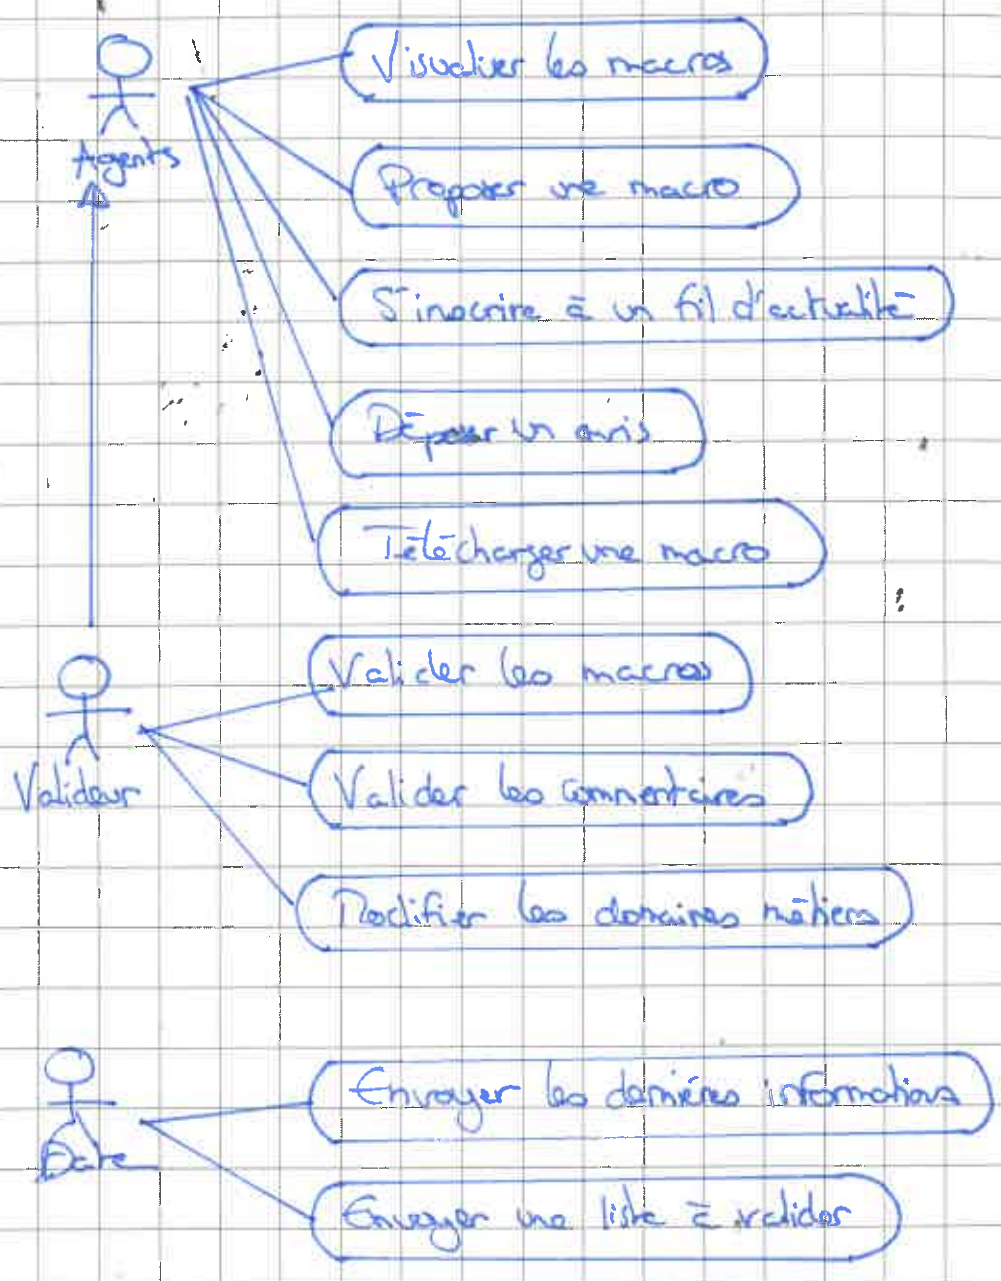 Visualiser les macros
Agents
Proposer une macro
S'inscrire à un fil d'actualité
Déposer un avis
Télécharger une macro
Valider les macros
Valideur
Valider les commentaires
Modifier les domaines métiers
Envoyer les dernières informations
Date
Envoyer une liste à valider